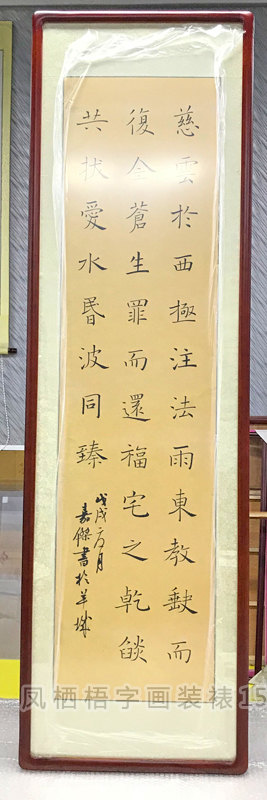 慈雲於西極注法雨東教缺而
復全蒼生罪而還福宅之乾燄
共状愛水昬波同臻
戊戌六月
嘉傑書於羊城
凤栖梧字画装裱15